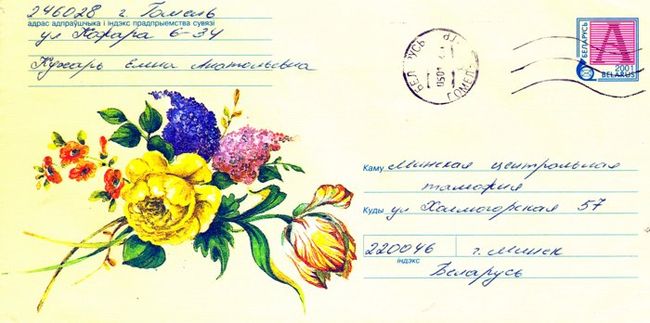 246028 г. Гомель
адрас адпраўшчыка і індэкс прадпрыемства сувязі
ул 6-34
Кухарь Елена Анатольевна
БЕЛАРУСЬ
ГОМЕЛЬ
БЕЛАРУСЬ
А
2001
BELARUS
Каму Минская центральная
таможня
Куды ул Холмогорская 57
220046 г. Минск
індэкс
Беларусь